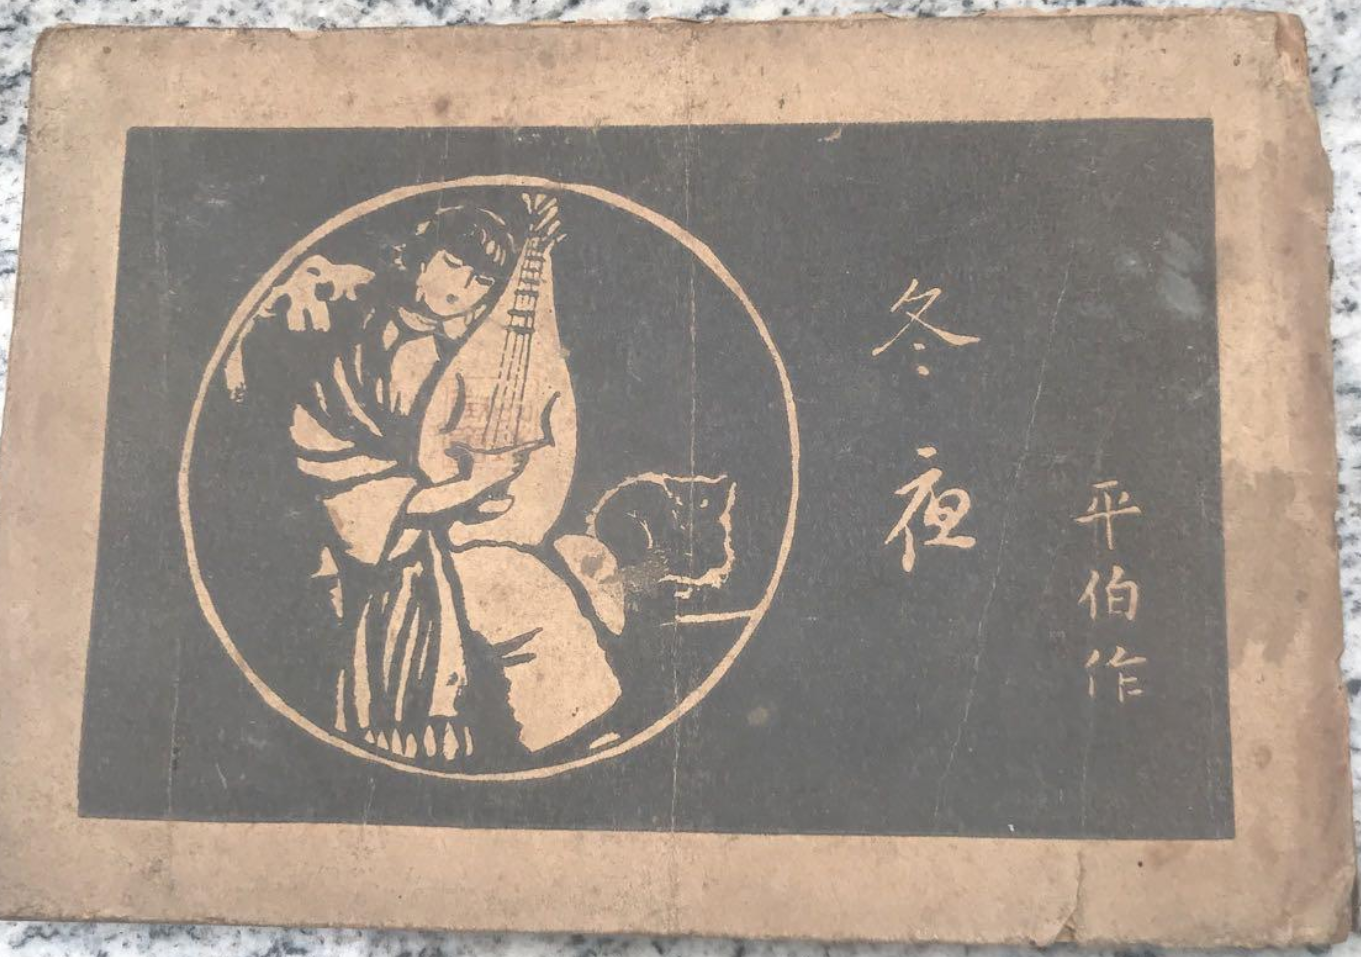 冬夜
平伯作